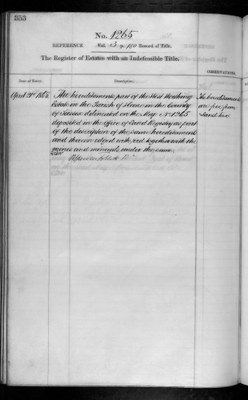 553
No. 1265
REFERENCE Vol. 13. p. 100 Record of Title.
The Register of Estates with an Indefeasible Title.
Date of Entry. Description. OBSERVATIONS.
April 21st The hereditaments part of the West Worthing
Estate in the Parish of Heene in the County
of Sussex delineated on the Map No 1265
deposited in the Office of Land Registry as part
of the description of the same hereditaments
and thereon edged with red together with the
mines and minerals under the same.
The hereditaments
are free from
Land Tax.